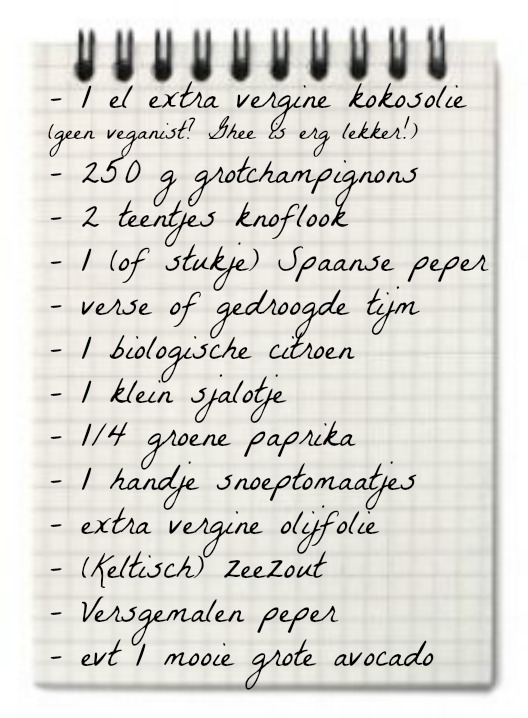 - 1 el extra vergine kokosolie
(geen veganist? Ghee is erg lekker!)
- 250 g grotchampignons
- 2 teentjes knoflook
- 1 (of stukje) Spaanse peper
- verse of gedroogde tijm
- 1 biologische citroen
- 1 klein sjalotje
- 1/4 groene paprika
- 1 handje snoeptomaatjes
- extra vergine olijfolie
- (Keltisch) zeezout
- Versgemalen peper
- evt 1 mooie grote avocado